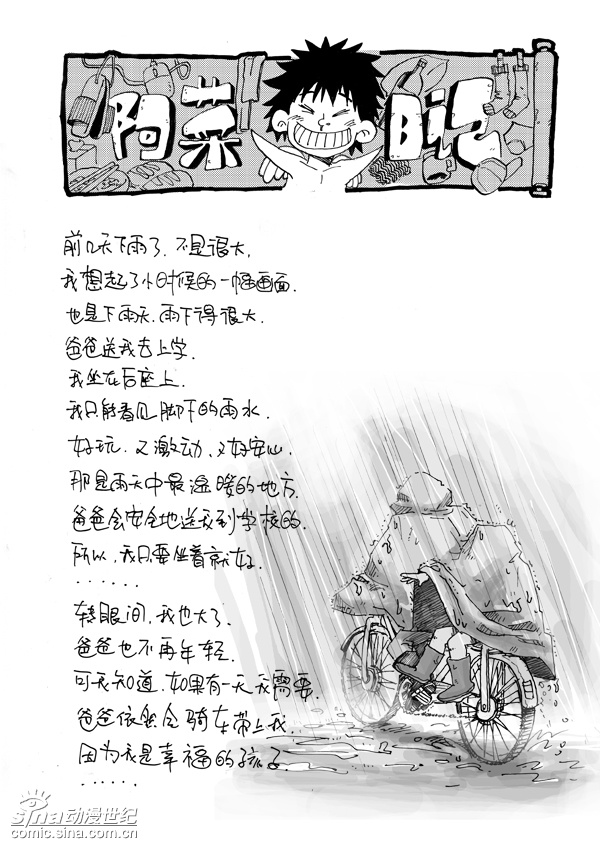 阿菜日记
前几天下雨了.不是很大.
我想起了小时候的一幅画面.
也是下雨天.雨下得很大.
爸爸送我去上学.
我坐在后座上.
我只能看见脚下的雨水.
好玩.又激动.又好安心.
那是雨天中最温暖的地方.
爸爸会安全地送我到学校的.
所以.我只要坐着就好.
······
转眼间.我也大了.
爸爸也不再年轻.
可我知道.如果有一天我需要.
爸爸依然会骑车带上我.
因为我是幸福的孩子.
······
sina动漫世纪
comic.sina.com.cn